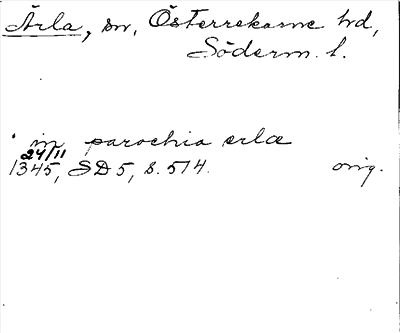 Ärla, sn, Österrekarne hd,
Söderm. l.
in parochia erlæ
24/11
1345, SD 5, s. 514. orig.